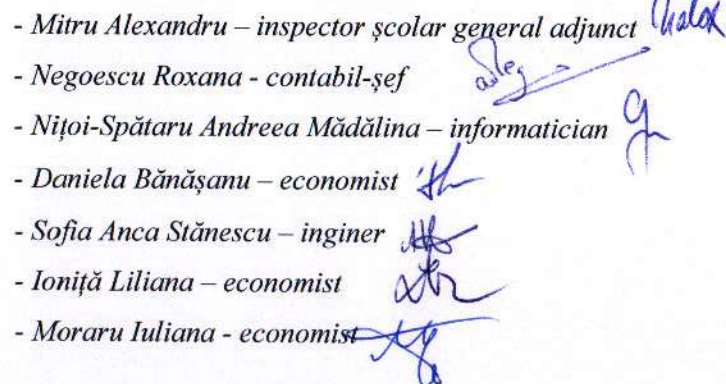 - Mitru Alexandru – inspector școlar general adjunct
- Negoescu Roxana - contabil-șef
- Nițoi-Spătaru Andreea Mădălina – informatician
- Daniela Bănășanu – economist
- Sofia Anca Stănescu – inginer
- Ioniță Liliana – economist
- Moraru Iuliana - economist